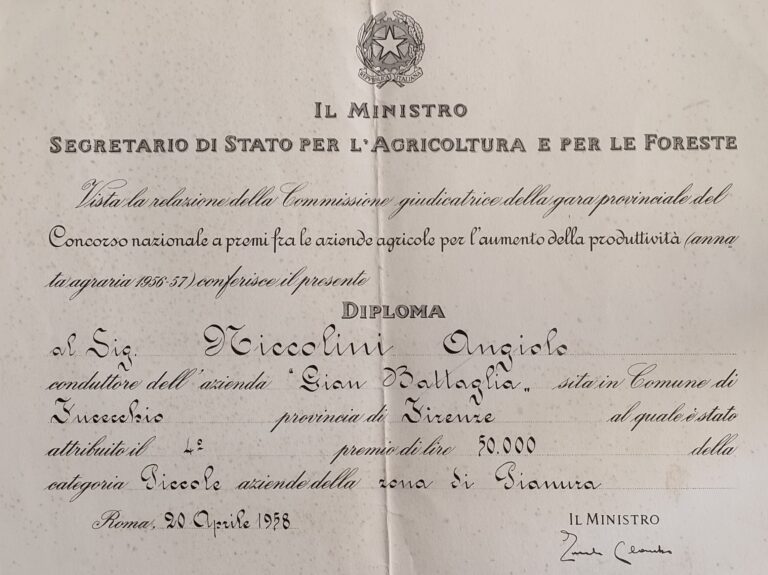 REPVBBLICA ITALIANA
IL MINISTRO
SEGRETARIO DI STATO PER L'AGRICOLTURA E PER LE FORESTE
Vista la relazione della Commissione giudicatrice della gara provinciale del
Concorso nazionale a premi fra le aziende agricole per l'aumento della produttività (anna
ta agraria 1956-57) conferisce il presente
DIPLOMA
al Sig. Niccolini Angiolo
conduttore dell'azienda "Gian Battaglia" sita in Comune di
Fucecchio provincia di Firenze al quale è stato
attribuito il 4º premio di lire 50.000 della
categoria Piccole aziende della zona di Pianura
Roma, 20 Aprile 1958
IL MINISTRO